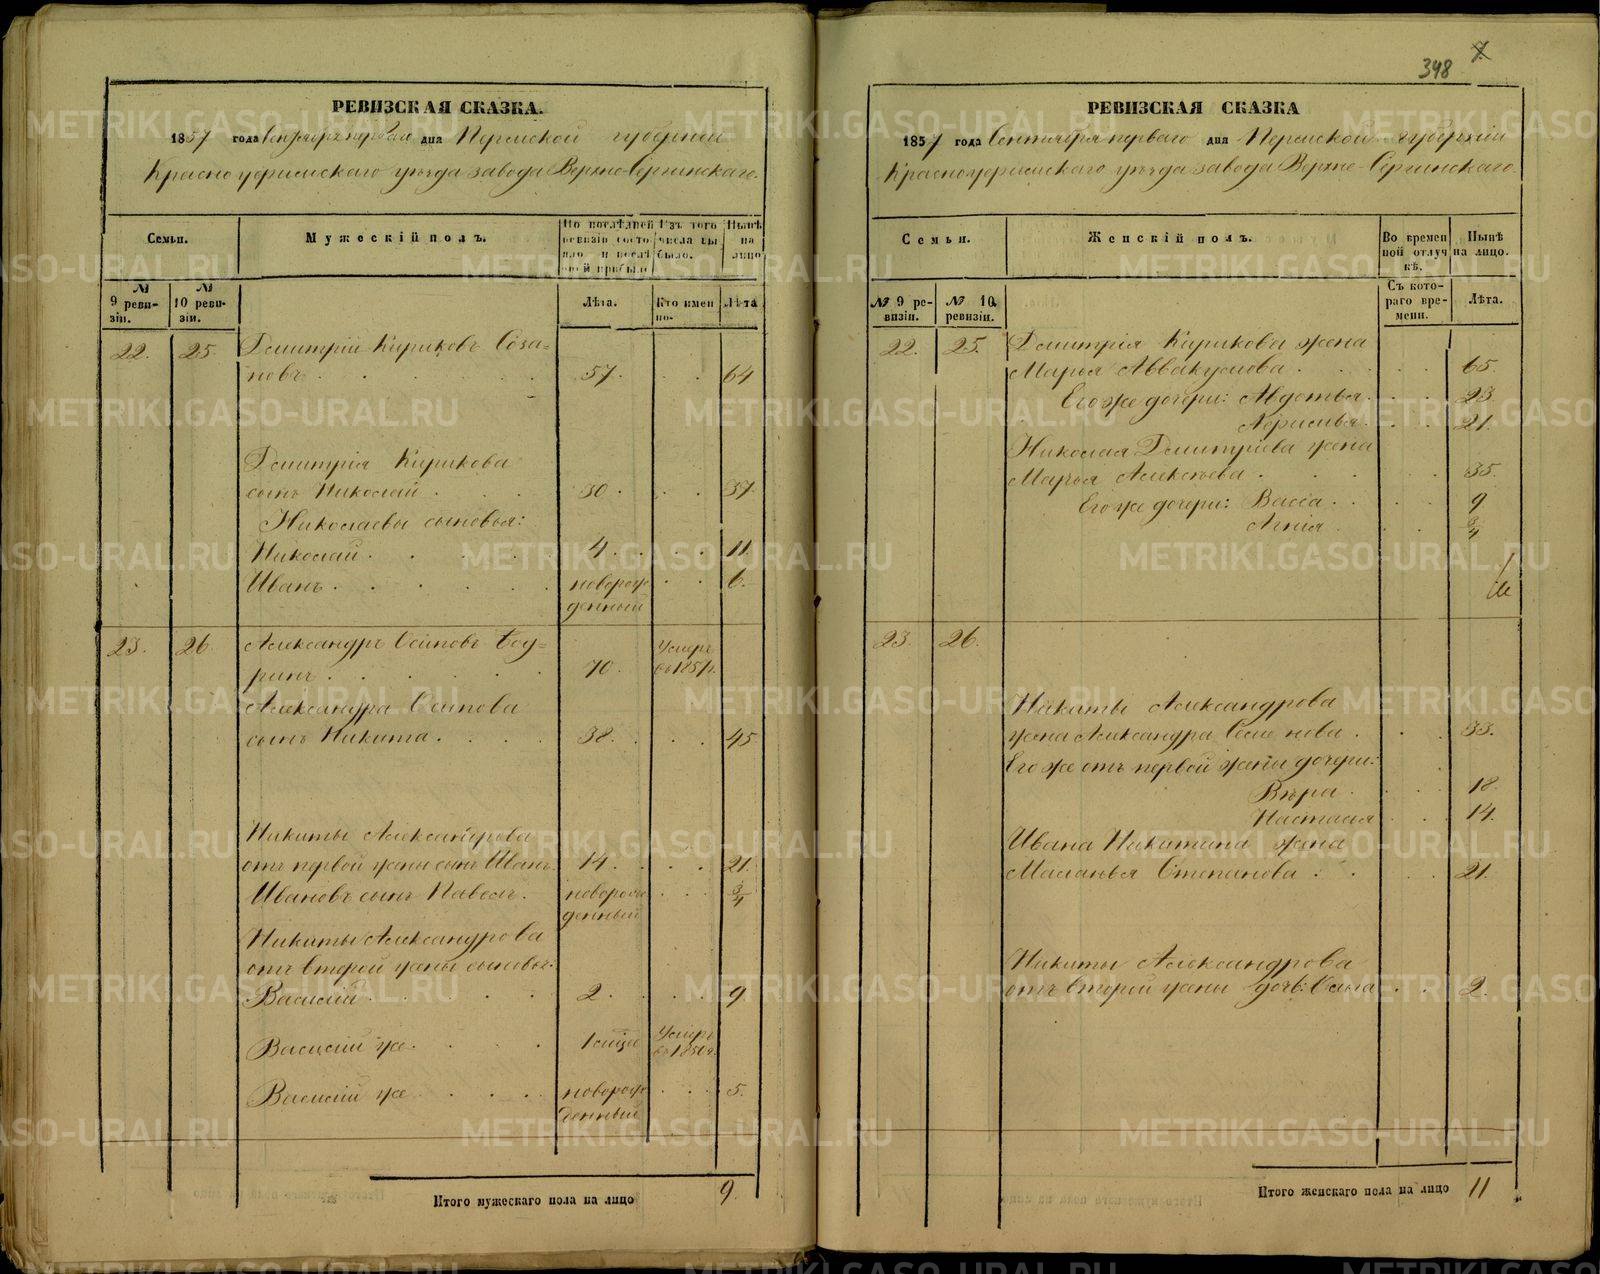 РЕВИЗСКАЯ СКАЗКА.
1857 года Сентября перваго дня Пермской губернии
Красноуфимскаго уезда завода Верхне-Сергинскаго.
Семьи.
Мужескій полъ.
По последней ревизіи состояло и после оной прибыло
Изъ того числа выбыло.
Ныне на лицо
№ 9 ревизіи.
№ 10 ревизіи.
Лѣта.
Кто именно.
Лѣта
22. 25. Дмитрій Кириковъ Соза=
новъ 57. 64
Дмитрія Кирикова
сынъ Николай 30. 37.
Николаевы сыновья:
Николай 4 11.
Иванъ новорож 6.
денный
23. 26. Александръ Осиповъ Бод=
ринъ 70. Умеръ въ 1857г.
Александра Осипова
сынъ Никита 38. 45
Никиты Александрова
отъ первой жены сынъ Иванъ 14. 21.
Ивановъ сынъ Павелъ новорож 3/4
денный
Никиты Александрова
отъ второй жены сыновья:
Василій 2. 9
Василій же 1 мѣся Умеръ
Василій же новорож 5.
денный
Итого мужескаго пола на лицо 9.
348
РЕВИЗСКАЯ СКАЗКА
1857 года Сентября перваго дня Пермской губерніи
Красноуфимскаго уѣзда завода Верхне-Сергинскаго.
Семьи.
Женскій полъ.
Во временной отлучкѣ.
Нынѣ на лицо.
№ 9 ревизіи.
№ 10 ревизіи.
Съ котораго времени.
Лѣта.
22. 25. Дмитрія Кирикова жена
Марья Аввакумова 65.
Его же дочери: Авдотья 23
21.
Николая Дмитріева жена
Марья Алексѣева 35.
Его же дочери: Васса 9
Агнія 3/4
23. 26.
Никиты Александрова
жена Александра Семенова 33.
Его же отъ первой жены дочери:
Вѣра 18
Настасья 14.
Ивана Никитина жена
Маланья Степанова 21.
Никиты Александрова
отъ второй жены дочь: 2.
Итого женскаго пола на лицо 11
METRIKI.GASO-URAL.RU